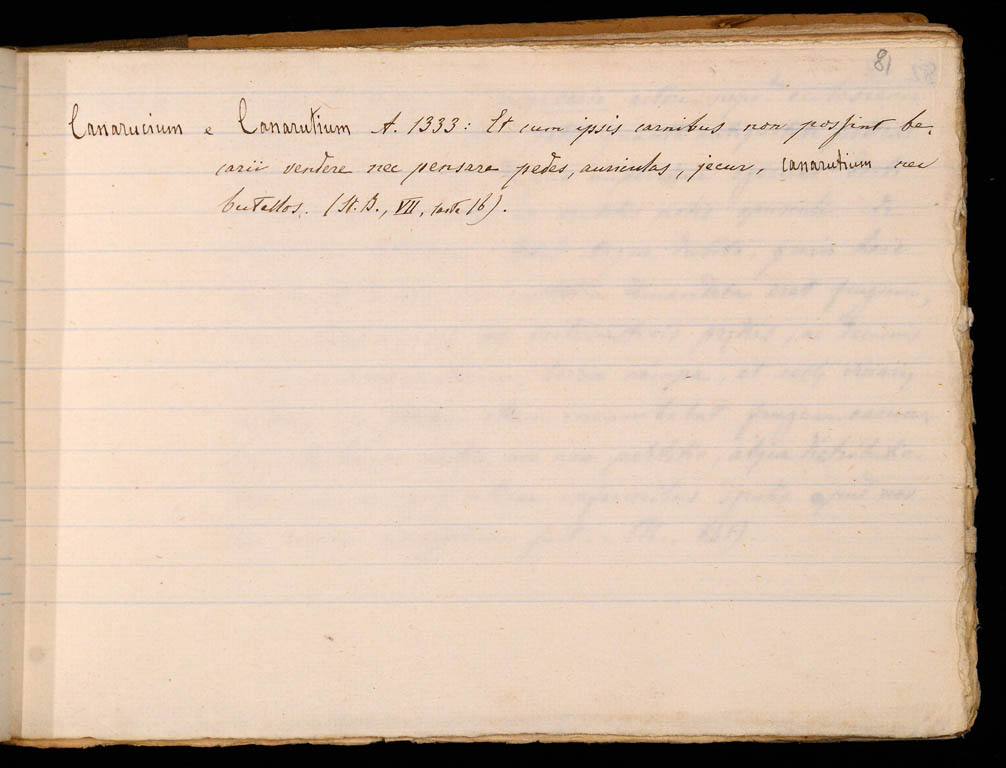 81
Canarucium e Canarutium A. 1333: Et cum ipsis carnibus non possint be-
carii vendere nec pensare pedes, auriculas, jecur, canarutium nec
butellos. (St. B., VII, carte 16).